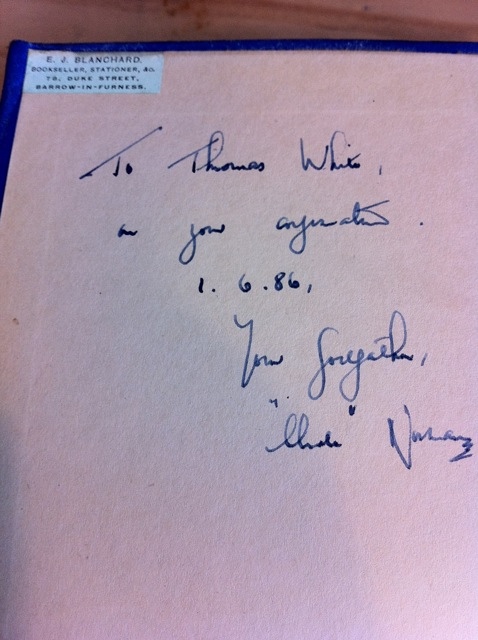 E. J. BLANCHARD.
BOOKSELLER, STATIONER, &c.
76, DUKE STREET,
BARROW-IN-FURNESS.
To Thomas White,
on your confirmation.
1. 6. 86,
Your Godfather,
"Uncle" Norman